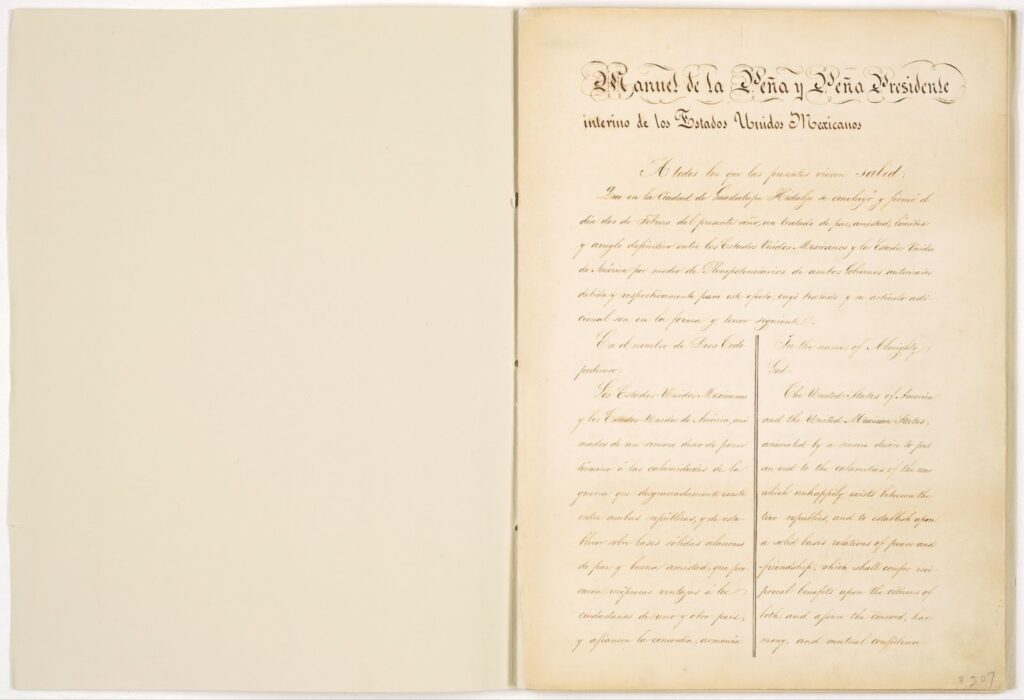 Manuel de la Peña y Peña Presidente
interino de los Estados Unidos Mexicanos
A todos los que las presentes vieren sabed:
Que en la Ciudad de Guadalupe Hidalgo se concluyó y firmó el
dia dos de Febrero del presente año, un tratado de paz, amistad, límites
y arreglo definitivo entre los Estados Unidos Mexicanos y los Estados Unidos
de América por medio de Plenipotenciarios de ambos Gobiernos autorizados
debida y respectivamente para este efecto, cuyo tratado y su artículo adi-
cional son en la forma y tenor siguiente.
En el nombre de Dios Todo-
poderoso.
Los Estados Unidos Mexicanos
y los Estados Unidos de América, ani-
mados de un sincero deseo de poner
término á las calamidades de la
guerra que desgraciadamente existe
entre ambas repúblicas, y de esta-
blecer sobre bases sólidas relaciones
de paz y buena amistad, que pro-
curen recíprocas ventajas á los
ciudadanos de uno y otro pais,
y afianzen la concordia, armonía
In the name of Almighty
God.
The United States of America
and the United Mexican States,
animated by a sincere desire to put
an end to the calamities of the war
which unhappily exists between the
two republics, and to establish upon
a solid basis relations of peace and
friendship, which shall confer reci-
procal benefits upon the citizens of
both, and assure the concord, har-
mony, and mutual confidence
207